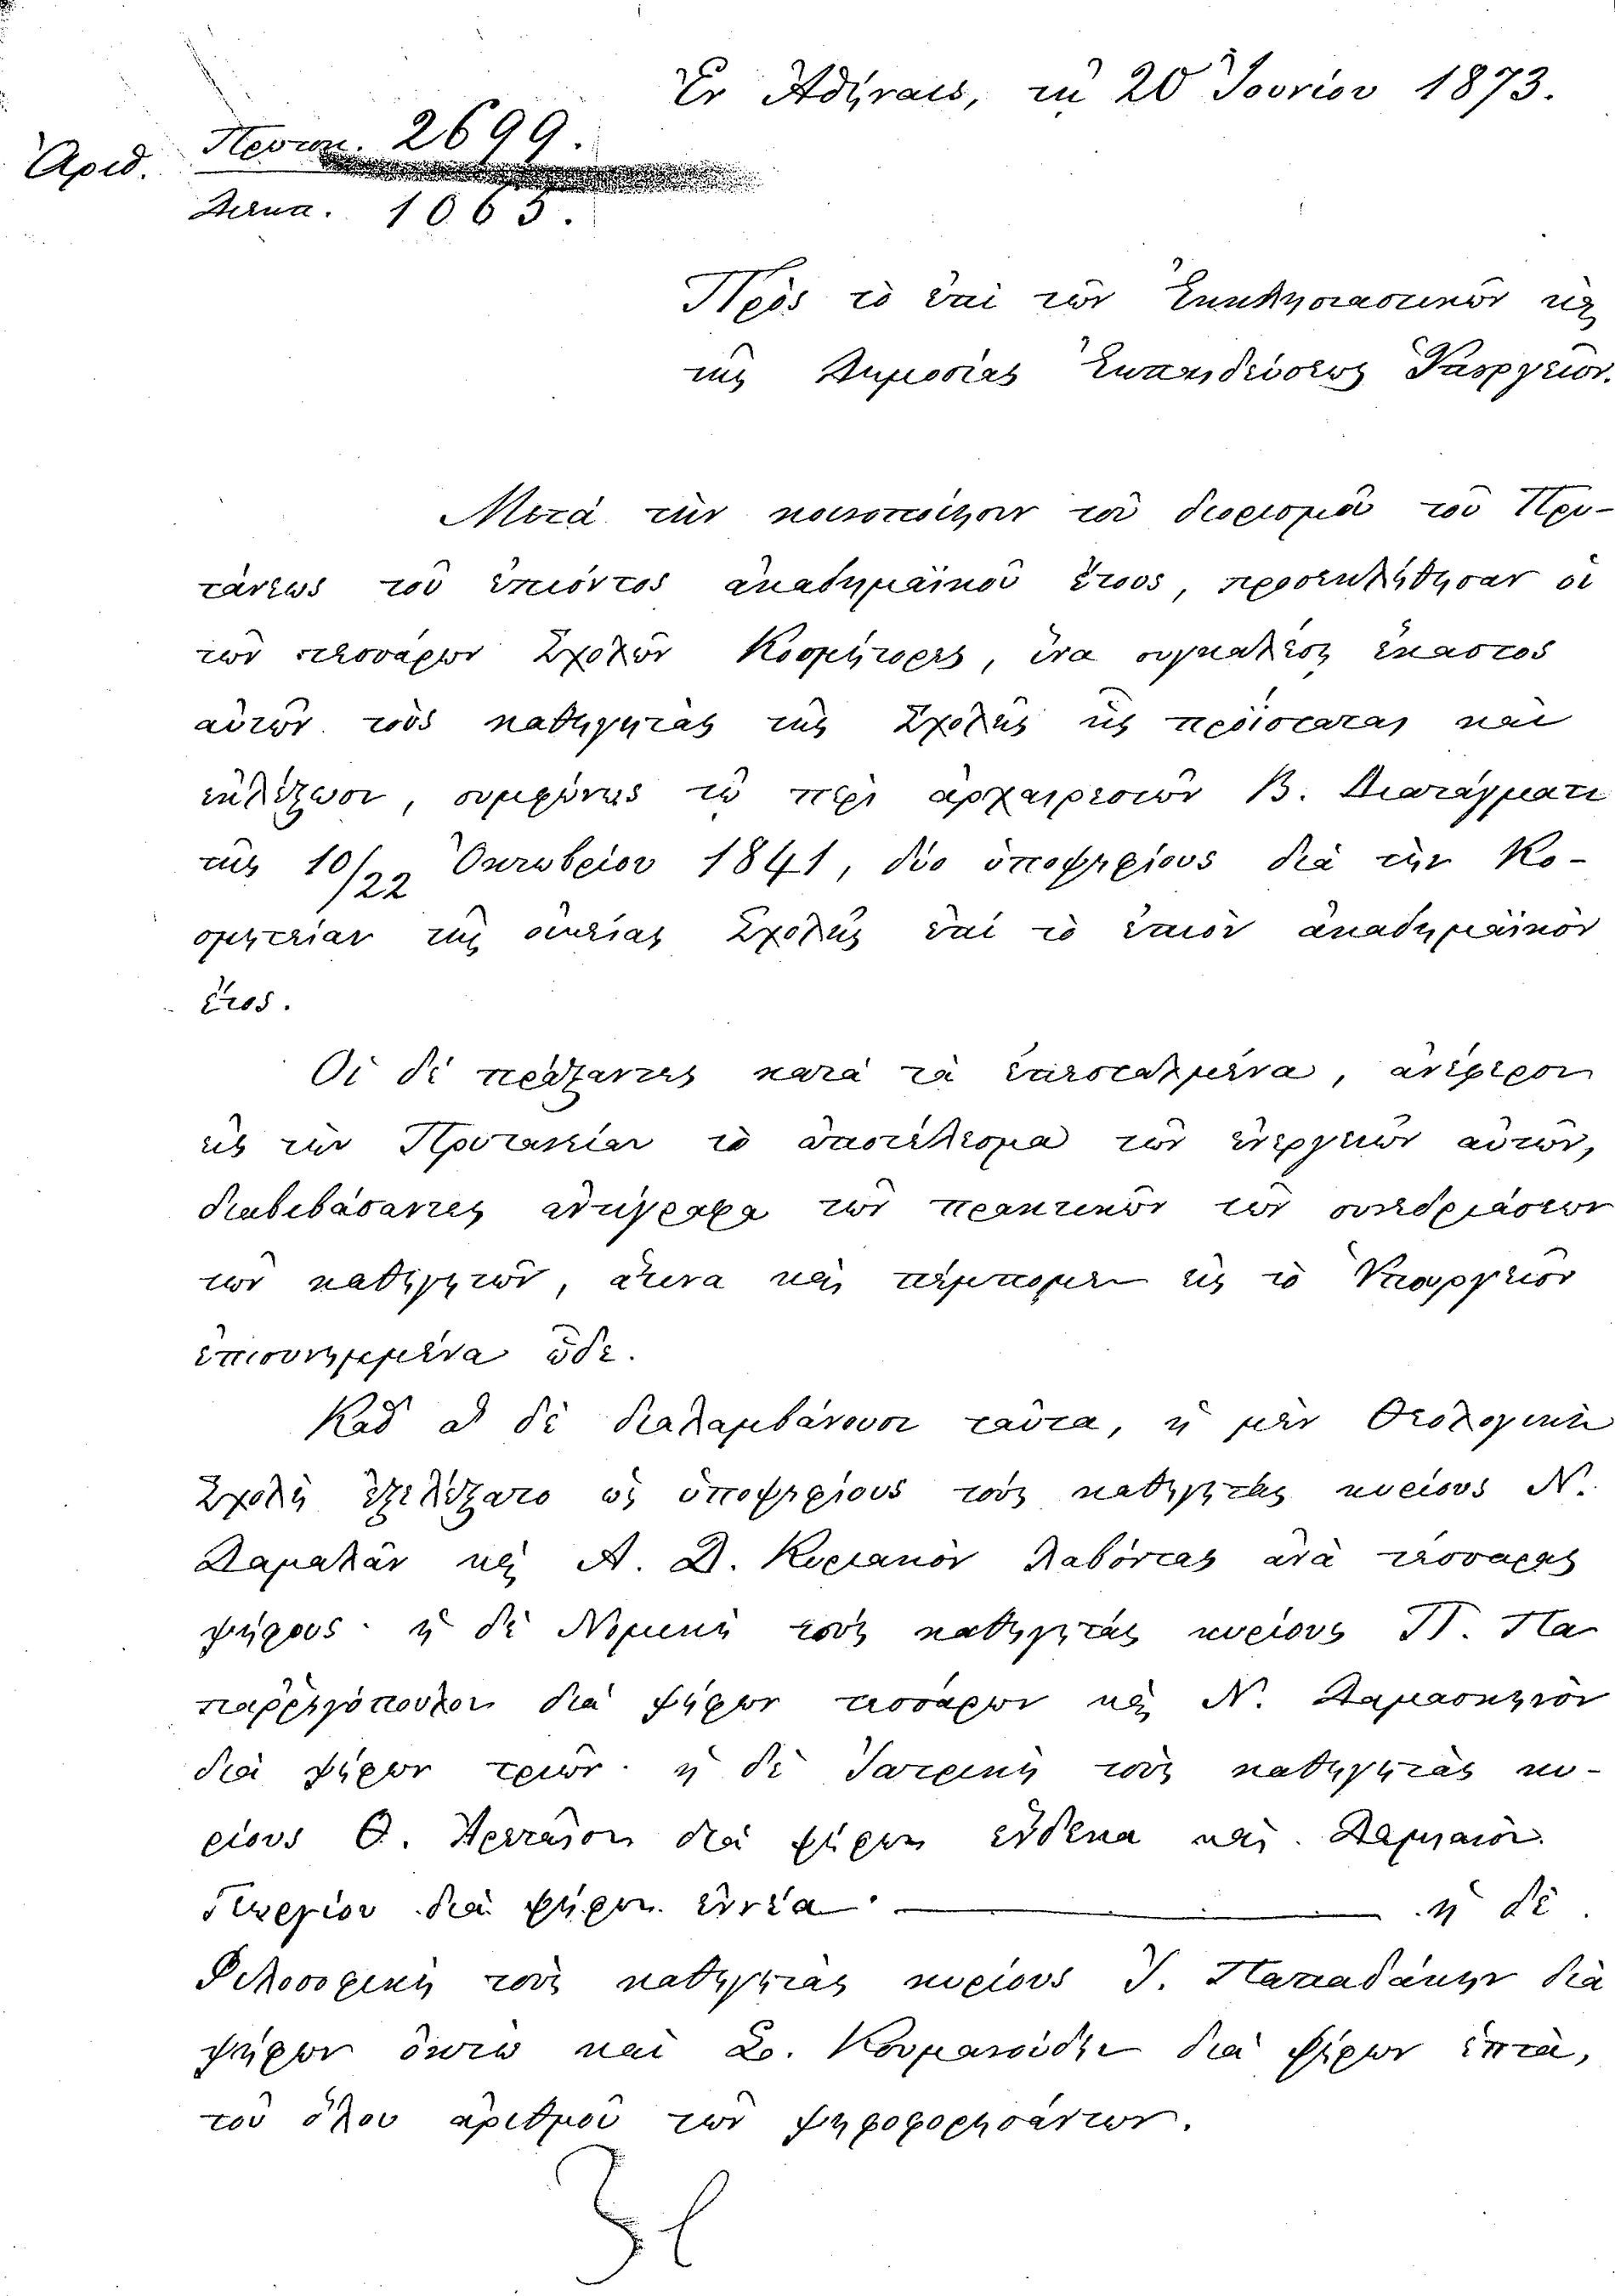 Ἐν Ἀθήναις, τῇ 20 Ἰουνίου 1873.
Ἀριθ. Πρωτ. 2699.
Διεκπ. 1065.
Πρὸς τὸ ἐπὶ τῶν Ἐκκλησιαστικῶν κὶ
τῆς Δημοσίας Ἐκπαιδεύσεως Ὑπουργεῖον.
Μετὰ τὴν κοινοποίησιν τοῦ διορισμοῦ τοῦ Πρυ-
τάνεως τοῦ ἐπιόντος ἀκαδημαϊκοῦ ἔτους, προσεκλήθησαν οἱ
τῶν τεσσάρων Σχολῶν Κοσμήτορες, ἵνα συγκαλέσῃ ἕκαστος
αὐτῶν τοὺς καθηγητὰς τῆς Σχολῆς ἧς προΐσταται καὶ
ἐκλέξωσι, συμφώνως τῷ περὶ ἀρχαιρεσιῶν Β. Διατάγματι
τῆς 10/22 Ὀκτωβρίου 1841, δύο ὑποψηφίους διὰ τὴν Κο-
σμητείαν τῆς οἰκείας Σχολῆς ἐπὶ τὸ ἐπιὸν ἀκαδημαϊκὸν
ἔτος.
Οἱ δὲ πράξαντες κατὰ τὰ ἐπεσταλμένα, ἀνέφερον
εἰς τὴν Πρυτανείαν τὸ ἀποτέλεσμα τῶν ἐνεργειῶν αὐτῶν,
διαβιβάσαντες ἀντίγραφα τῶν πρακτικῶν τῶν συνεδριάσεων
τῶν καθηγητῶν, ἅτινα καὶ πέμπομεν εἰς τὸ Ὑπουργεῖον
ἐπισυνημμένα ὧδε.
Καθ' ἃ δὲ διαλαμβάνουσι ταῦτα, ἡ μὲν Θεολογικὴ
Σχολὴ ἐξελέξατο ὡς ὑποψηφίους τοὺς καθηγητὰς κυρίους Ν.
Δαμαλᾶν καὶ Α. Δ. Κυριακὸν λαβόντας ἀνὰ τέσσαρας
ψήφους· ἡ δὲ Νομικὴ τοὺς καθηγητὰς κυρίους Π. Πα
παρρηγόπουλον διὰ ψήφων τεσσάρων καὶ Ν. Δαμασκηνὸν
διὰ ψήφων τριῶν· ἡ δὲ Ἰατρικὴ τοὺς καθηγητὰς κυ-
ρίους Θ. Ἀρεταῖον διὰ ψήφων ἕνδεκα καὶ Δαμιανὸν
Γεωργίου διὰ ψήφων ἐννέα· ἡ δὲ
Φιλοσοφικὴ τοὺς καθηγητὰς κυρίους Ι. Παπαδάκην διὰ
ψήφων ὀκτὼ καὶ Σ. Κουμανούδην διὰ ψήφων ἑπτὰ,
τοῦ ὅλου ἀριθμοῦ τῶν ψηφοφορησάντων.